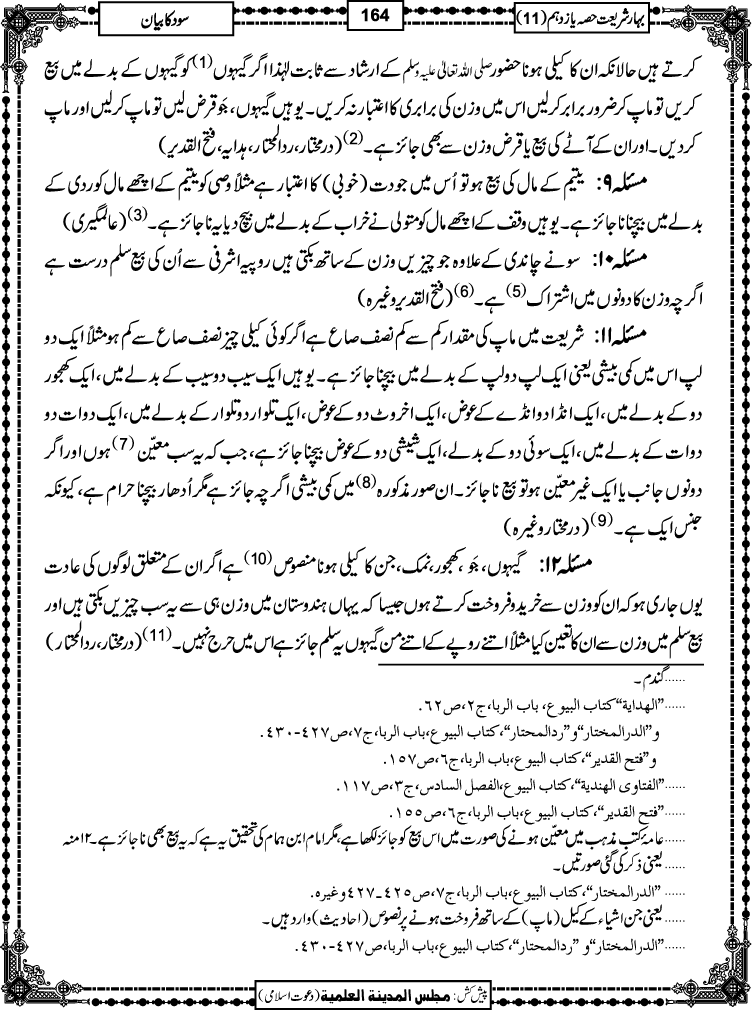 بہار شریعت حصہ یازدہم (11)
164
سود کا بیان
کرتے ہیں حالانکہ ان کا کیلی ہونا حضور صلی اللہ تعالیٰ علیہ وسلم کے ارشاد سے ثابت لہٰذا اگر گیہوں (1) کو گیہوں کے بدلے میں بیع
کریں تو ماپ کر ضرور برابر کرلیں اس میں وزن کی برابری کا اعتبار نہ کریں۔ یوہیں گیہوں، جَو قرض لیں تو ماپ کر لیں اور ماپ
کر دیں۔ اور ان کے آٹے کی بیع یا قرض وزن سے بھی جائز ہے۔ (2) (درمختار، ردالمحتار، ہدایہ، فتح القدیر)
مسئلہ ۹: یتیم کے مال کی بیع ہو تو اُس میں جودت (خوبی) کا اعتبار ہے مثلاً وصی کو یتیم کے اچھے مال کو ردی کے
بدلے میں بیچنا ناجائز ہے۔ یوہیں وقف کے اچھے مال کو متولی نے خراب کے بدلے میں بیچ دیا یہ ناجائز ہے۔ (3) (عالمگیری)
مسئلہ ۱۰: سونے چاندی کے علاوہ جو چیزیں وزن کے ساتھ بکتی ہیں روپیہ اشرفی سے اُن کی بیع سلم درست ہے
اگرچہ وزن کا دونوں میں اشتراک (5) ہے۔ (6) (فتح القدیر وغیرہ)
مسئلہ ۱۱: شریعت میں ماپ کی مقدار کم سے کم نصف صاع ہے اگر کوئی کیلی چیز نصف صاع سے کم ہو مثلاً ایک دو
لپ اس میں کمی بیشی یعنی ایک لپ دو لپ کے بدلے میں بیچنا جائز ہے۔ یوہیں ایک سیب دو سیب کے بدلے میں، ایک کھجور
دو کے بدلے میں، ایک انڈا دو انڈے کے عوض، ایک اخروٹ دو کے عوض، ایک تلوار دو تلوار کے بدلے میں، ایک دوات دو
دوات کے بدلے میں، ایک سوئی دو کے بدلے، ایک شیشی دو کے عوض بیچنا جائز ہے، جب کہ یہ سب معیّن (7) ہوں اور اگر
دونوں جانب یا ایک غیر معیّن ہو تو بیع ناجائز۔ ان صور مذکورہ (8) میں کمی بیشی اگرچہ جائز ہے مگر اُدھار بیچنا حرام ہے، کیونکہ
جنس ایک ہے۔ (9) (درمختار وغیرہ)
مسئلہ ۱۲: گیہوں، جَو، کھجور، نمک، جن کا کیلی ہونا منصوص (10) ہے اگر ان کے متعلق لوگوں کی عادت
یوں جاری ہو کہ ان کو وزن سے خرید و فروخت کرتے ہوں جیسا کہ یہاں ہندوستان میں وزن ہی سے یہ سب چیزیں بکتی ہیں اور
بیع سلم میں وزن سے ان کا تعین کیا مثلاً اتنے روپے کے اتنے من گیہوں یہ سلم جائز ہے اس میں حرج نہیں۔ (11) (درمختار، ردالمحتار)
......گندم۔
......”الھدایة“ کتاب البیوع، باب الربا، ج۲، ص۶۲.
و”الدرالمختار“ و”ردالمحتار“، کتاب البیوع، باب الربا، ج۷، ص۴۲۷-۴۳۰.
و”فتح القدیر“، کتاب البیوع، باب الربا، ج۶، ص۱۵۷.
......”الفتاوی الھندیة“، کتاب البیوع، الفصل السادس، ج۳، ص۱۱۷.
......”فتح القدیر“، کتاب البیوع، باب الربا، ج۶، ص۱۵۵.
......عامۂ کتب مذہب میں معیّن ہونے کی صورت میں اس بیع کو جائز لکھا ہے، مگر امام ابن ہمام کی تحقیق یہ ہے کہ یہ بیع بھی ناجائز ہے۔ ۱۲ منہ
......یعنی ذکر کی گئی صورتیں۔
......”الدرالمختار“، کتاب البیوع، باب الربا، ج۷، ص۴۲۵-۴۲۷ وغیرہ.
......یعنی جن اشیاء کے کیل (ماپ) کے ساتھ فروخت ہونے پر نصوص (احادیث) وارد ہیں۔
......”الدرالمختار“ و”ردالمحتار“، کتاب البیوع، باب الربا، ص۴۲۷-۴۳۰.
پیش کش: مجلس المدینة العلمیة (دعوت اسلامی)